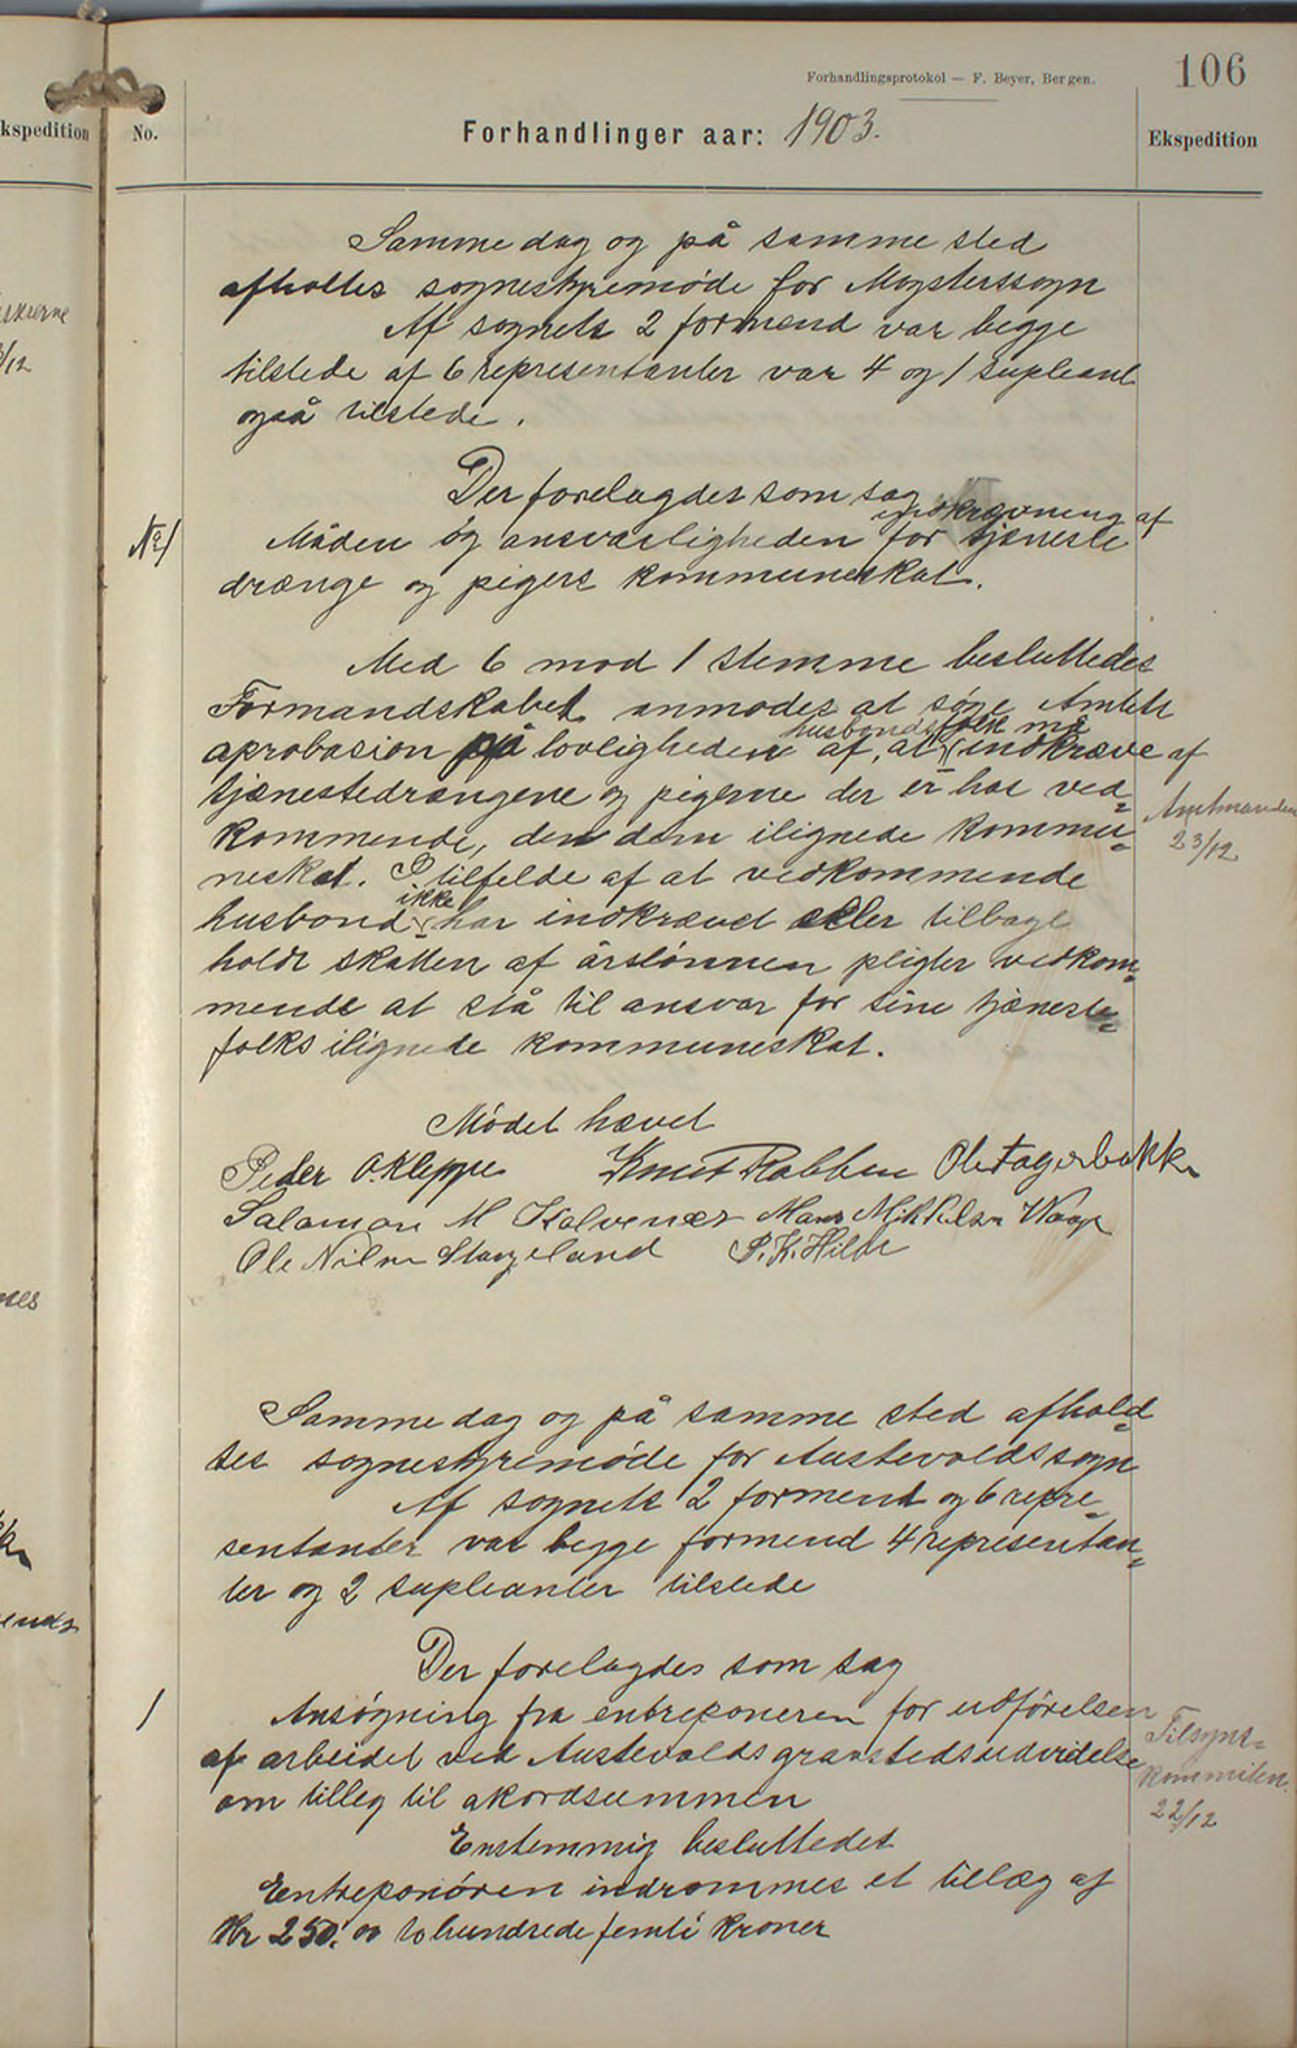 Forhandlingsprotokol — F. Beyer, Bergen.
106
kspedition
No.
Forhandlinger aar: 1903.
Ekspedition
Samme dag og på samme sted
afholtes sognestyremøde for Møgsterssogn
Af sognets 2 formænd var begge
tilstede af 6 representanter var 4 og 1 supleant
også tilstede.
Der forelagdes som sag
indkrævning af
No 1
Måden og ansvarligheden for tjeneste
drænge og pigers kommuneskat.
Med 6 mod 1 stemme besluttedes
Formandskabet anmodes at søge Amtets
husbondsfolk må
aprobasion på lovligheden af, at indkræve af
tjænestedrængene og pigerne der er hos ved=
kommende, den dem ilignede kommu=
neskat. I tilfelde af at vedkommende
ikke
husbond har indkrævet eller tilbage
holdt skatten af årslønnen pligter vedkom=
mende at stå til ansvar for sine tjæneste=
folks ilignede kommuneskat.
Amtmanden
23/12
Mødet hævet
Peder O. Kleppe Knut Rabben Ole Fagerbakke
Salamon M Kalvenæs Mans Mikkelsen Waage
Ole Nilsen Stangeland P. K. Hilde
Samme dag og på samme sted afhold=
tes sognestyremøde for Austevolds sogn
Af sognets 2 formend og 6 repre=
sentanter var begge formend 4 representan=
ter og 2 supleanter tilstede
Der forelagdes som sag
1
Ansøgning fra entreponeren for udførelsen
af arbeidet ved Austevolds gravstedsudvidelse
om tilleg til akordsummen
Tilsyns=
kommiteen
22/12
Enstemmig besluttedes
Entreponøren indrømmes et tillæg af
Kr 250,00 to hundrede femti kroner